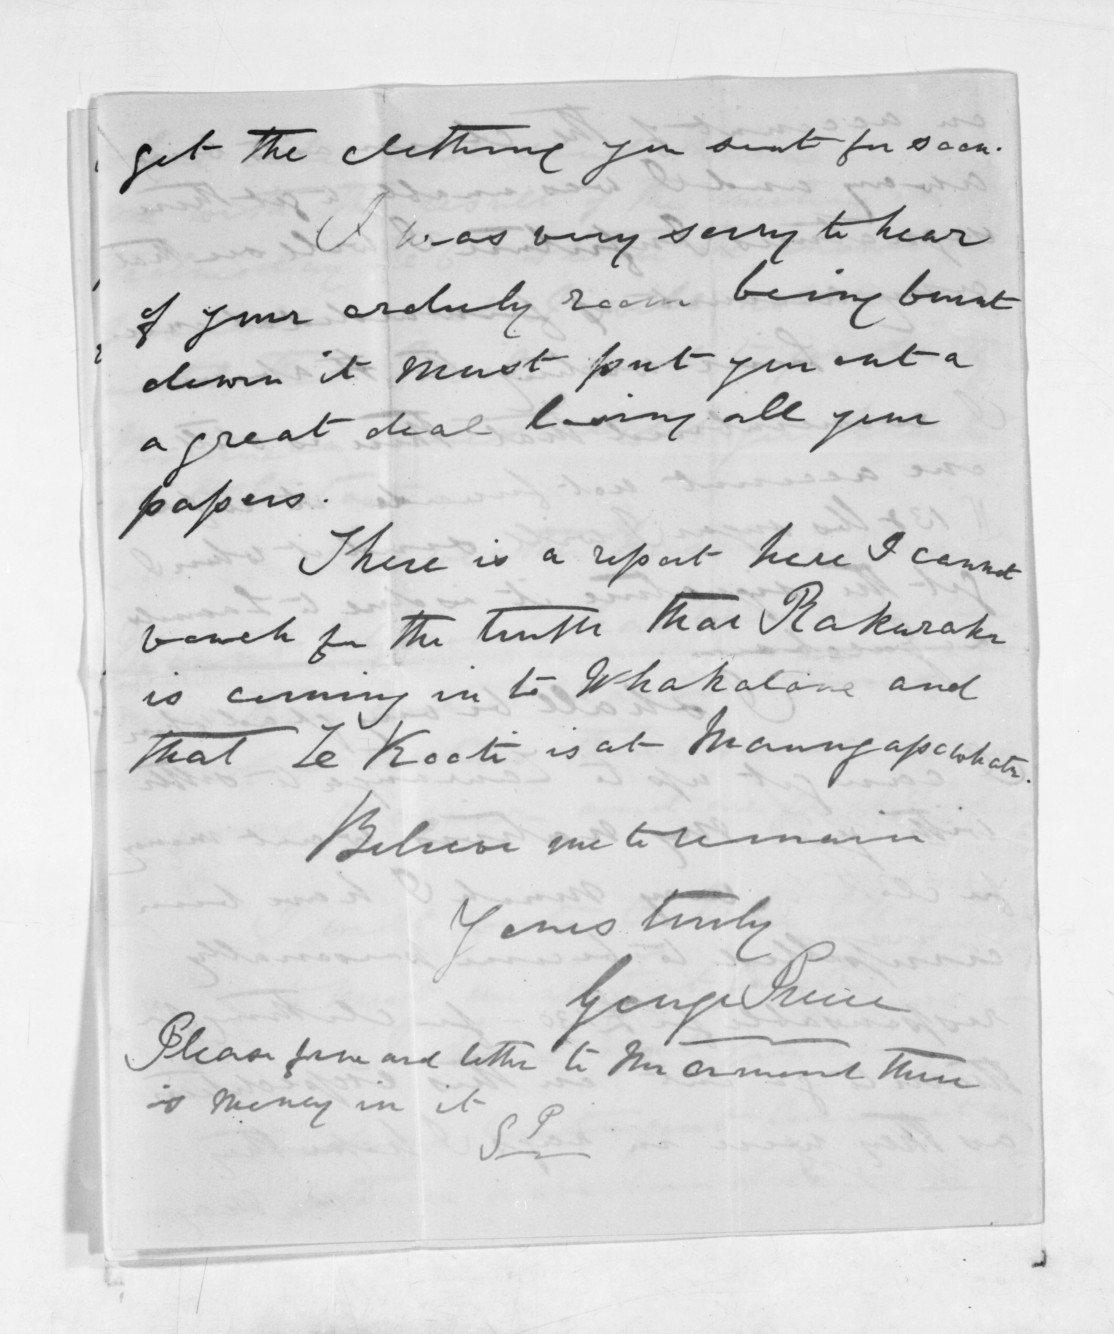 get the clothing you sent for soon.
I was very sorry to hear
of your orderly room being burnt
down it must put you out a
a great deal losing all your
papers.
There is a report here I cannot
vouch for the truth that Rakuraku
is coming in to Whakatane and
that Te Kooti is at Maungapowhatu.
Believe me to remain
Yours truly
George Preece
Please forward letter to Mr Ormond there
is money in it